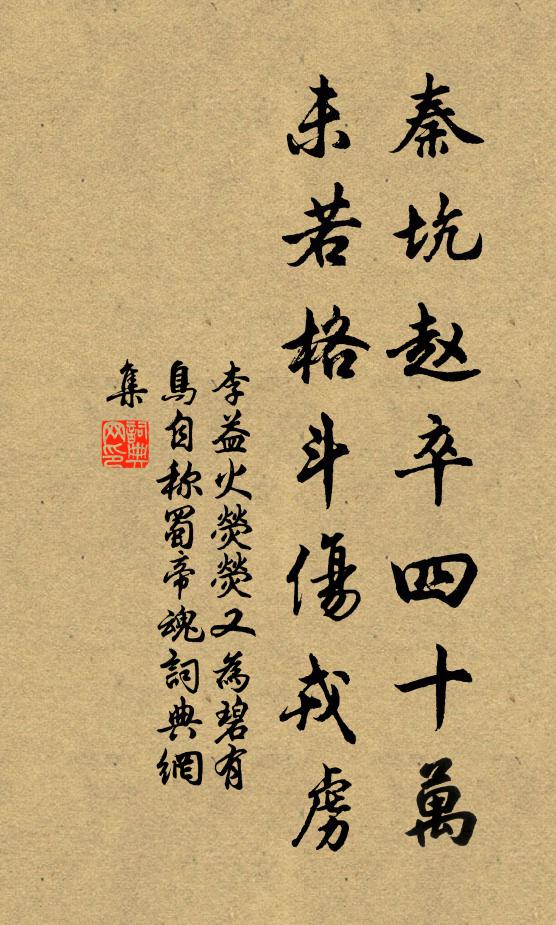 秦坑赵卒四十萬
未若格斗傷戎虜
李益火熒熒又為碧有
鳥自称蜀帝魂詞典網
集
詞典网印